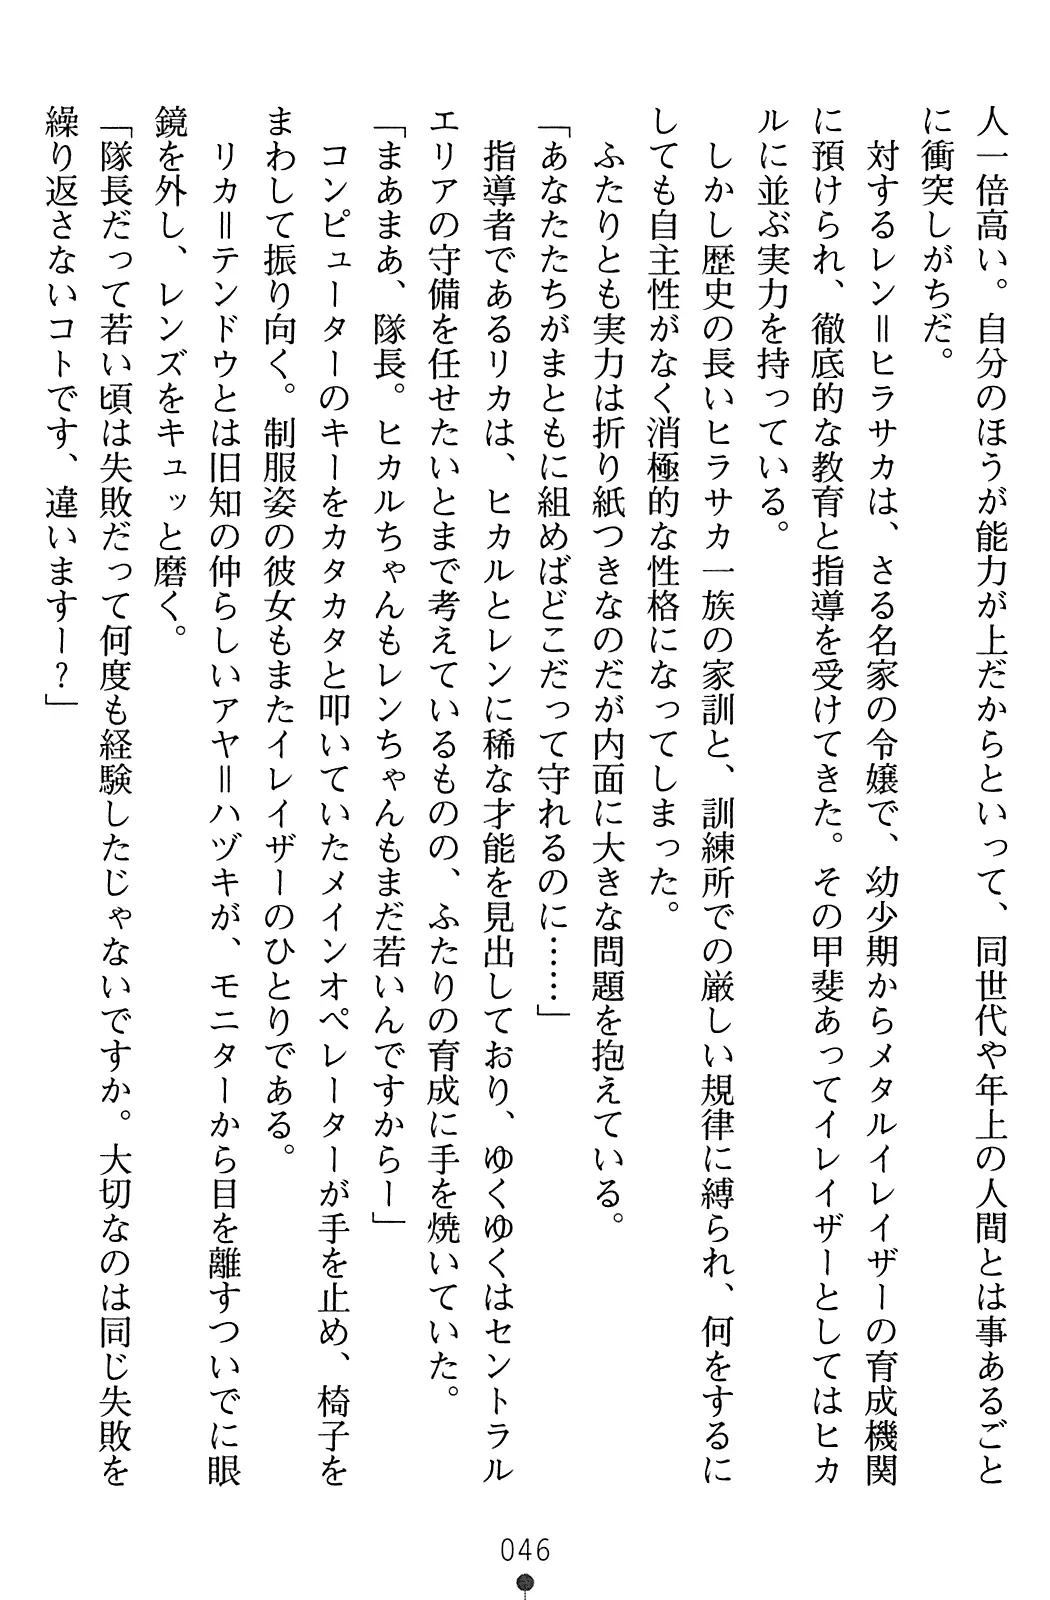 人一倍高い。自分のほうが能力が上だからといって、同世代や年上の人間とは事あるごと
に衝突しがちだ。
　対するレン＝ヒラサカは、さる名家の令嬢で、幼少期からメタルイレイザーの育成機関
に預けられ、徹底的な教育と指導を受けてきた。その甲斐あってイレイザーとしてはヒカ
ルに並ぶ実力を持っている。
　しかし歴史の長いヒラサカ一族の家訓と、訓練所での厳しい規律に縛られ、何をするに
しても自主性がなく消極的な性格になってしまった。
　ふたりとも実力は折り紙つきなのだが内面に大きな問題を抱えている。
「あなたたちがまともに組めばどこだって守れるのに……」
　指導者であるリカは、ヒカルとレンに稀な才能を見出しており、ゆくゆくはセントラル
エリアの守備を任せたいとまで考えているものの、ふたりの育成に手を焼いていた。
「まあまあ、隊長。ヒカルちゃんもレンちゃんもまだ若いんですからー」
　コンピューターのキーをカタカタと叩いていたメインオペレーターが手を止め、椅子を
まわして振り向く。制服姿の彼女もまたイレイザーのひとりである。
　リカ＝テンドウとは旧知の仲らしいアヤ＝ハヅキが、モニターから目を離すついでに眼
鏡を外し、レンズをキュッと磨く。
「隊長だって若い頃は失敗だって何度も経験したじゃないですか。大切なのは同じ失敗を
繰り返さないコトです、違いますー？」
046